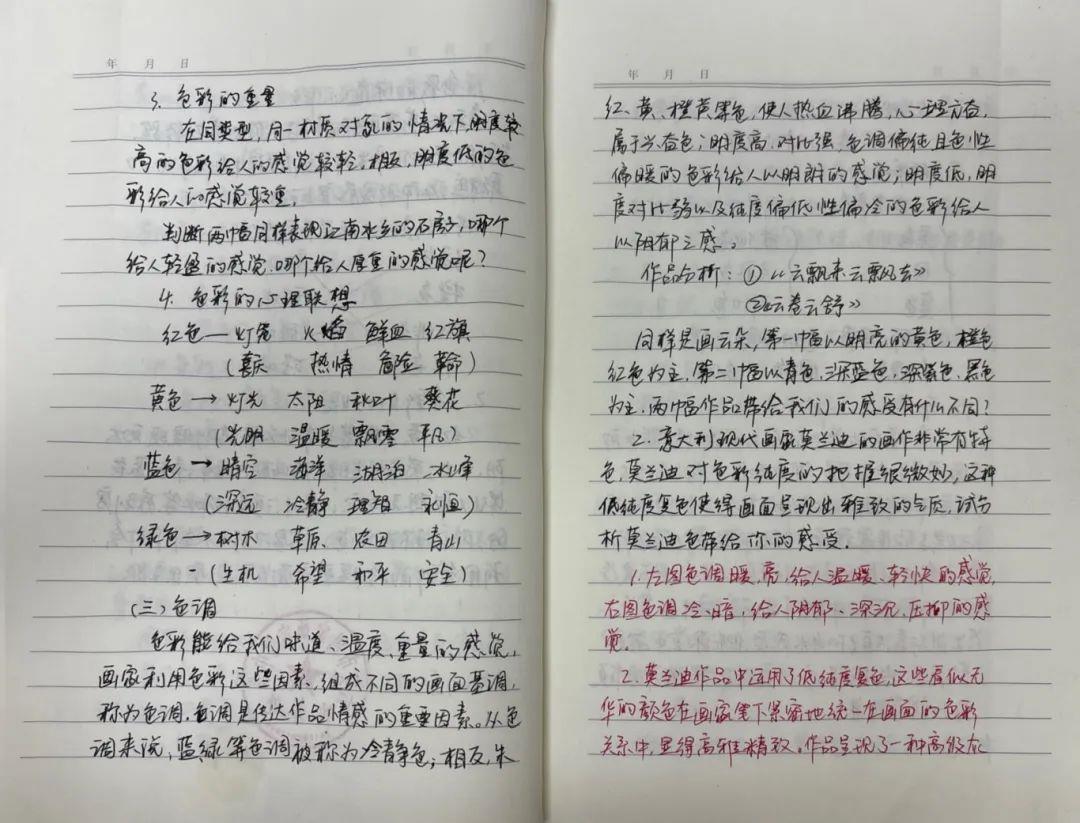 年 月 日
3. 色彩的重量
在同类型、同一材质对乱的情况下,明度较
高的色彩给人的感觉较轻。相反,明度低的色
彩给人的感觉较重。
判断两幅同样表现江南水乡的石房子,哪个
给人轻盈的感觉,哪个给人厚重的感觉呢?
4. 色彩的心理联想
红色—灯笼 火焰 鲜血 红旗
(喜庆 热情 危险 革命)
黄色→灯光 太阳 秋叶 葵花
(光明 温暖 飘零 平凡)
蓝色→晴空 海洋 湖泊 冰峰
(深远 冷静 理智 永恒)
绿色→树木 草原 农田 青山
-(生机 希望 和平 安全)
(三)色调
色彩能给我们味道、温度、重量的感觉,
画家利用色彩这些因素,组成不同的画面基调,
称为色调。色调是传达作品情感的重要因素。从色
调来说,蓝绿等色调被称为冷静色;相反,朱
年 月 日
红、黄、橙黄等色,使人热血沸腾,心理亢奋,
属于兴奋色;明度高、对比强、色调偏纯且色性
偏暖的色彩给人以明朗的感觉;明度低,明
度对比弱以及纯度偏低性偏冷的色彩给人
以阴郁之感。
作品分析:①《云飘来云飘去》
②《云卷云舒》
同样是画云朵,第一幅以明亮的黄色,橙色
红色为主,第二幅以青色、深蓝色、深紫色、黑色
为主,两幅作品带给我们的感受有什么不同?
2. 意大利现代画家莫兰迪的画作非常有特
色,莫兰迪对色彩纯度的把握很微妙,这种
低纯度复色使得画面呈现出雅致的气质,试分
析莫兰迪色带给你的感受。
1. 左图色调暖、亮,给人温暖、轻快的感觉,
右图色调冷、暗,给人阴郁、深沉、压抑的感
觉。
2. 莫兰迪作品中运用了低纯度复色,这些看似无
华的颜色在画家笔下紧密地统一在画面的色彩
关系中,显得高雅精致。作品呈现了一种高级灰